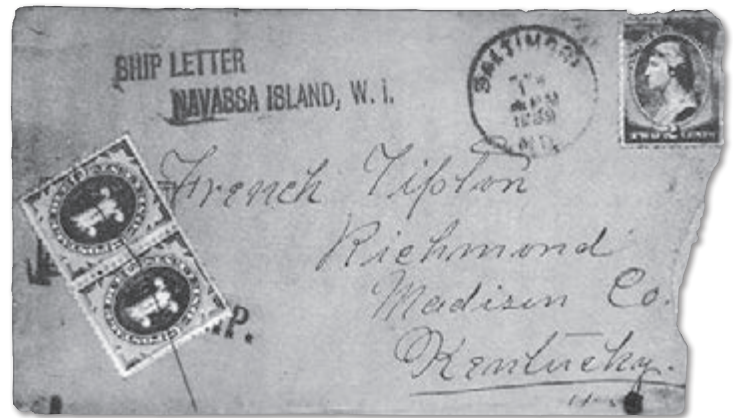 SHIP LETTER
NAVASSA ISLAND, W. I.
BALTIMORE
MD.
TWO CENTS
French Tipton
Richmond
Madison Co.
Kentucky.